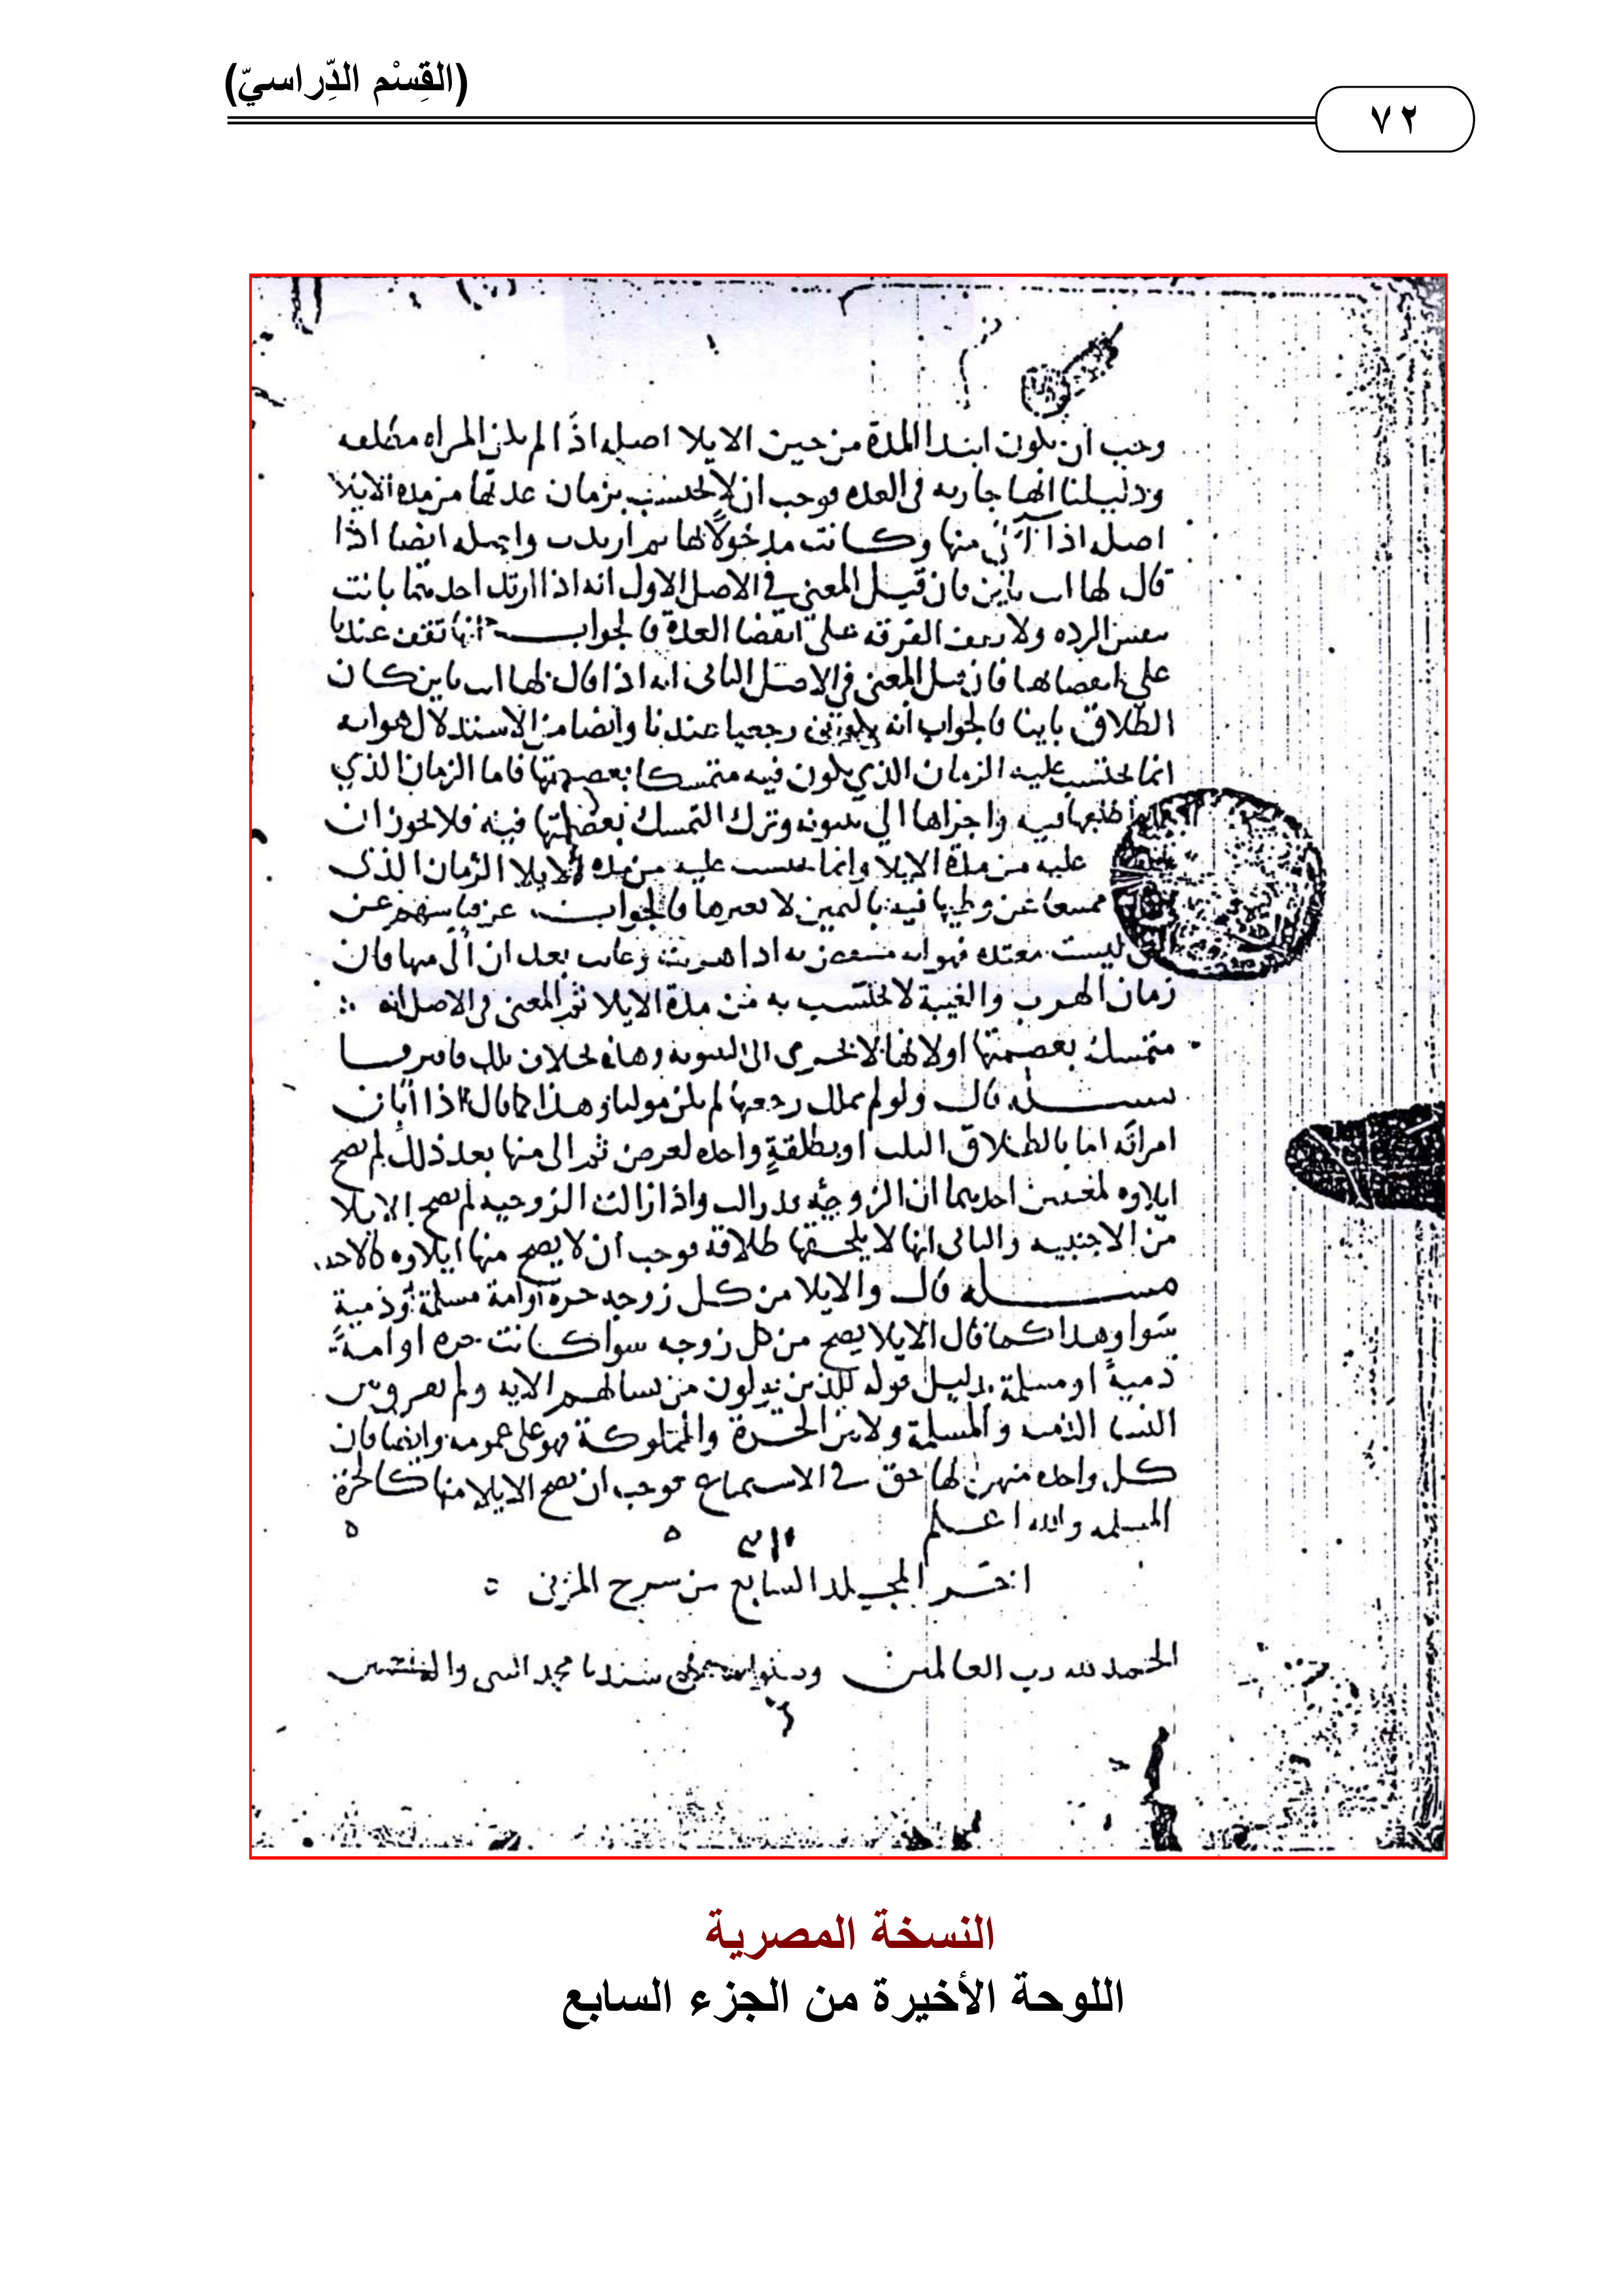 (القِسْم الدِّراسيّ)
٧٢
وجب ان يكون ابتدا المدة من حين الايلا اصله اذا لم يكن المراه مطلقه
ودليلنا انها جاريه في العده فوجب ان لا يحتسب بزمان عدتها من مده الايلا
اصله اذا آلى منها وكانت مدخولاً لها ثم ارتدت وايضا اذا
قال لها انت باين فان قيل المعنى في الاصل الاول انه اذا ارتد احدهما بانت
بنفس الرده ولا تقف الفرقه على انقضا العدة فالجواب انها تقف عندنا
على انقضاها فان قيل المعنى في الاصل الثاني انه اذا قال لها انت باين كان
الطلاق باينا فالجواب انه رجعيا عندنا وايضا من الاستدلال هو انه
انما يحتسب عليه الزمان الذي يكون فيه متمسكا بعصمتها فاما الزمان الذي
طلقها فيه واجراها الي بينونه وترك التمسك بعصمتها فيه فلا يجوز ان
عليه من مدة الايلا وانما يحتسب عليه من مده الايلا الزمان الذي
ممتنعا من وطيها فيه باليمين لا بغيرها فالجواب عن قياسهم عن
ليست معتده فهو انه منتقض به اذا هربت وغابت بعد ان آلى منها فان
زمان الهرب والغيبة لا يحتسب به من مدة الايلا ثم المعنى في الاصل انه
متمسك بعصمتها او لانها لا تجري الى البينونه وهذه بخلاف تلك فافترقا
مسـله قال ولو لم يملك رجعتها لم يكن موليا وهذا كما قال اذا ابان
امراته اما بالطلاق الثلث او بطلقةٍ واحده لعوض ثم الى منها بعد ذلك لم يصح
ايلاوه لمعنيين احدهما ان الزوجيه قد زالت واذا زالت الزوجيه لم يصح الايلا
من الاجنبيه والثاني انها لا يلحقها طلاقه فوجب ان لا يصح منها ايلاوه
مسـله قال والايلا من كل زوجه حرة او امة مسلمة او ذمية
سوا وهذا كما قال الايلا يصح من كل زوجه سوا كانت حره او امة
ذميةً او مسلمة بدليل قوله للذين يولون من نسائهم الايه ولم يفرق بين
النسا الذميه والمسلمة ولا بين الحرة والمملوكة فهو على عمومه وايضا فان
كل واحده منهن لها حق في الاستمتاع فوجب ان يصح الايلا منها كالحرة
المسلمه والله اعلم
اخر المجلد السابع من شرح المزني
الحمد لله رب العالمين وصلواته على سيدنا محمد النبي واله
النسخة المصرية
اللوحة الأخيرة من الجزء السابع